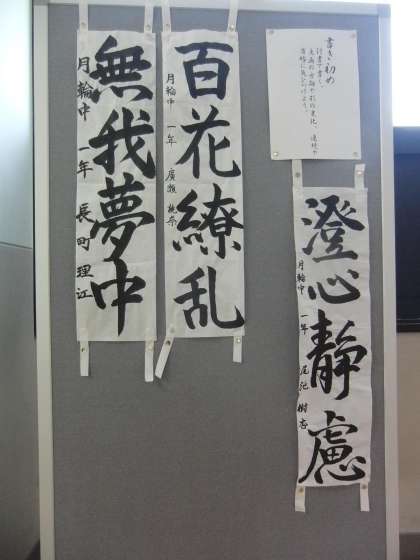 書き初め
行書で書く
澄心静慮
月輪中 一年 尾池 樹杏
百花繚乱
月輪中 一年 廣瀬
無我夢中
月輪中 一年 長町 理江